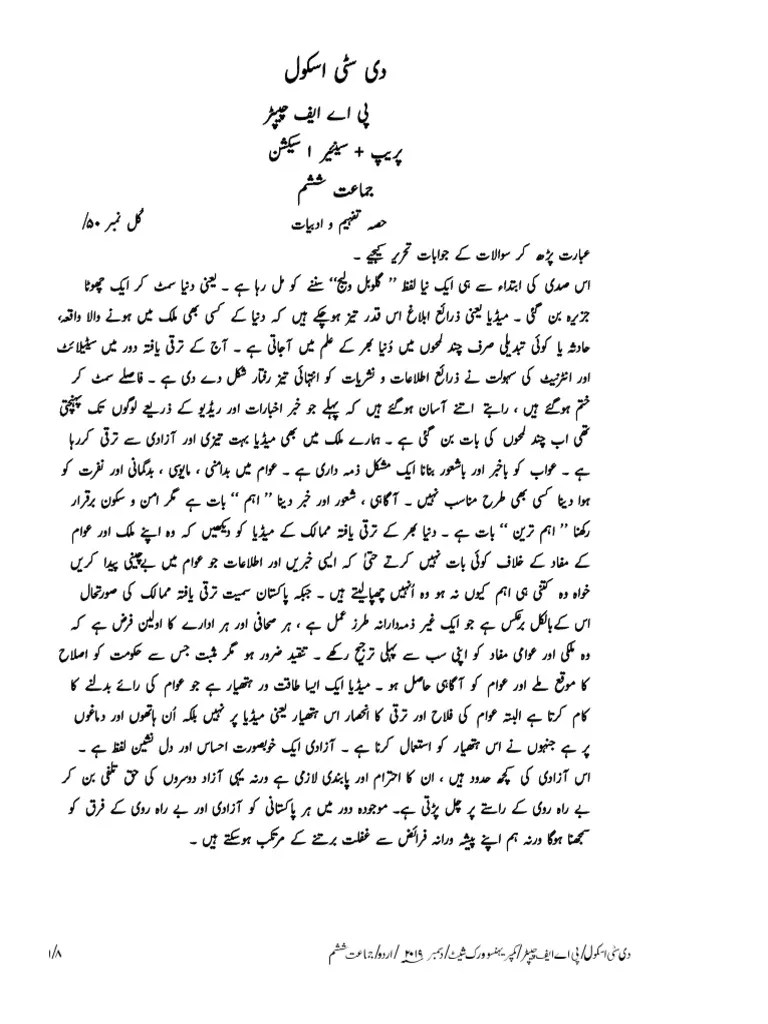 دی سٹی اسکول
پی اے ایف چیپٹر
پریپ + سینئیر ا سیکشن
جماعت ششم
حصہ تفہیم و ادبیات کُل نمبر ۵۰/
عبارت پڑھ کر سوالات کے جوابات تحریر کیجیے ۔
اس صدی کی ابتداء سے ہی ایک نیا لفظ ” گلوبل ولیج“ سننے کو مل رہا ہے ۔ یعنی دنیا سمٹ کر ایک چھوٹا
جزیرہ بن گئی ۔ میڈیا یعنی ذرائع ابلاغ اس قدر تیز ہوچکے ہیں کہ دنیا کے کسی بھی ملک میں ہونے والا واقعہ،
حادثہ یا کوئی تبدیلی صرف چند لمحوں میں دُنیا بھر کے علم میں آجاتی ہے ۔ آج کے ترقی یافتہ دور میں سیٹیلائٹ
اور انٹرنیٹ کی سہولت نے ذرائع اطلاعات و نشریات کو انتہائی تیز رفتار شکل دے دی ہے ۔ فاصلے سمٹ کر
ختم ہوگئے ہیں ، رابطے اتنے آسان ہوگئے ہیں کہ پہلے جو خبر اخبارات اور ریڈیو کے ذریعے لوگوں تک پہنچتی
تھی اب چند لمحوں کی بات بن گئی ہے ۔ ہمارے ملک میں بھی میڈیا بہت تیزی اور آزادی سے ترقی کررہا
ہے ۔ عواب کو باخبر اور باشعور بنانا ایک مشکل ذمہ داری ہے ۔ عوام میں بدامنی ، مایوسی ، بدگمانی اور نفرت کو
ہوا دینا کسی بھی طرح مناسب نہیں ۔ آگاہی ، شعور اور خبر دینا ” اہم “ بات ہے مگر امن و سکون برقرار
رکھنا ” اہم ترین “ بات ہے ۔ دنیا بھر کے ترقی یافتہ ممالک کے میڈیا کو دیکھیں کہ وہ اپنے ملک اور عوام
کے مفاد کے خلاف کوئی بات نہیں کرتے حتیٰ کہ ایسی خبریں اور اطلاعات جو عوام میں بےچینی پیدا کریں
خواہ وہ کتنی ہی اہم کیوں نہ ہو وہ اُنہیں چھپالیتے ہیں ۔ جبکہ پاکستان سمیت ترقی یافتہ ممالک کی صورتحال
اس کےبالکل برعکس ہے جو ایک غیر ذمہ‌دارانہ طرز عمل ہے ، ہر صحافی اور ہر ادارے کا اولین فرض ہے کہ
وہ ملکی اور عوامی مفاد کو اپنی سب سے پہلی ترجیح رکھے ۔ تنقید ضرور ہو مگر مثبت جس سے حکومت کو اصلاح
کا موقع ملے اور عوام کو آگاہی حاصل ہو ۔ میڈیا ایک ایسا طاقت ور ہتھیار ہے جو عوام کی رائے بدلنے کا
کام کرتا ہے البتہ عوام کی فلاح اور ترقی کا انحصار اس ہتھیار یعنی میڈیا پر نہیں بلکہ اُن ہاتھوں اور دماغوں
پر ہے جنہوں نے اس ہتھیار کو استعمال کرنا ہے ۔ آزادی ایک خوبصورت احساس اور دل نشین لفظ ہے ۔
اس آزادی کی کچھ حدود ہیں ، ان کا احترام اور پابندی لازمی ہے ورنہ یہی آزاد دوسروں کی حق تلفی بن کر
بے راہ روی کے راستے پر چل پڑتی ہے۔ موجودہ دور میں ہر پاکستانی کو آزادی اور بے راہ روی کے فرق کو
سمجھنا ہوگا ورنہ ہم اپنے پیشہ ورانہ فرائض سے غفلت برتنے کے مرتکب ہوسکتے ہیں ۔
دی سٹی اسکول/ پی اے ایف چیپٹر/ کمپریہنسو ورک شیٹ/ دسمبر ۲۰۱۹ / اردو/ جماعت ششم ۱/۸